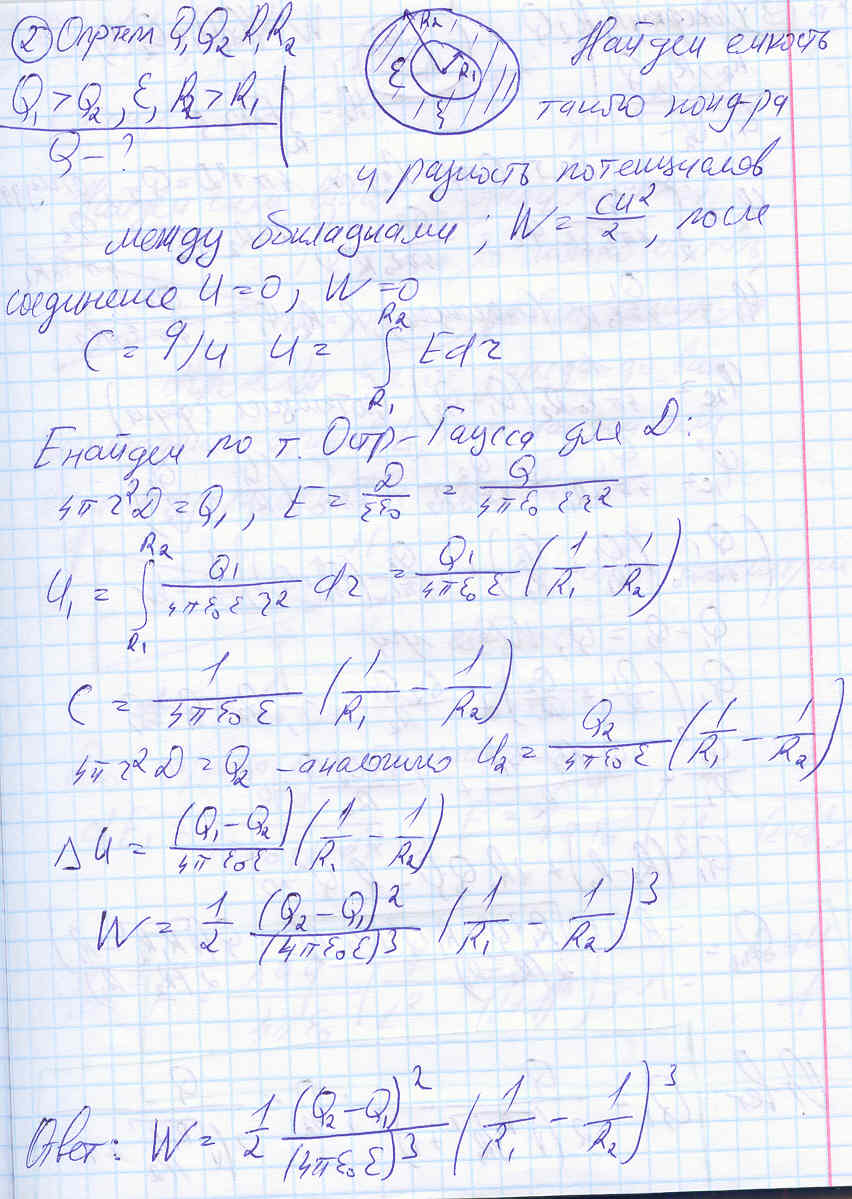 ② Опртем Q₁ Q₂ R₁ R₂
Q₁ > Q₂, ε, R₂ > R₁
Q - ?
R₂
R₁
ε
ε
Найдем емкость
такого конд-ра
и разность потенциалов
между обкладками; W = CU²/2, после
соединение U = 0, W = 0
C = q/U U = ∫_{R₁}^{R₂} E dr
E найдем по т. Остр-Гаусса для D:
4πr²D = Q₁, E = D/(εε₀) = Q/(4πε₀εr²)
U₁ = ∫_{R₁}^{R₂} Q₁/(4πε₀εr²) dr = Q₁/(4πε₀ε) (1/R₁ - 1/R₂)
C = 1/(4πε₀ε) (1/R₁ - 1/R₂)
4πr²D = Q₂ - аналогично U₂ = Q₂/(4πε₀ε) (1/R₁ - 1/R₂)
ΔU = (Q₁-Q₂)/(4πε₀ε) (1/R₁ - 1/R₂)
W = 1/2 (Q₂-Q₁)²/(4πε₀ε)³ (1/R₁ - 1/R₂)³
Ответ: W = 1/2 (Q₂-Q₁)²/(4πε₀ε)³ (1/R₁ - 1/R₂)³